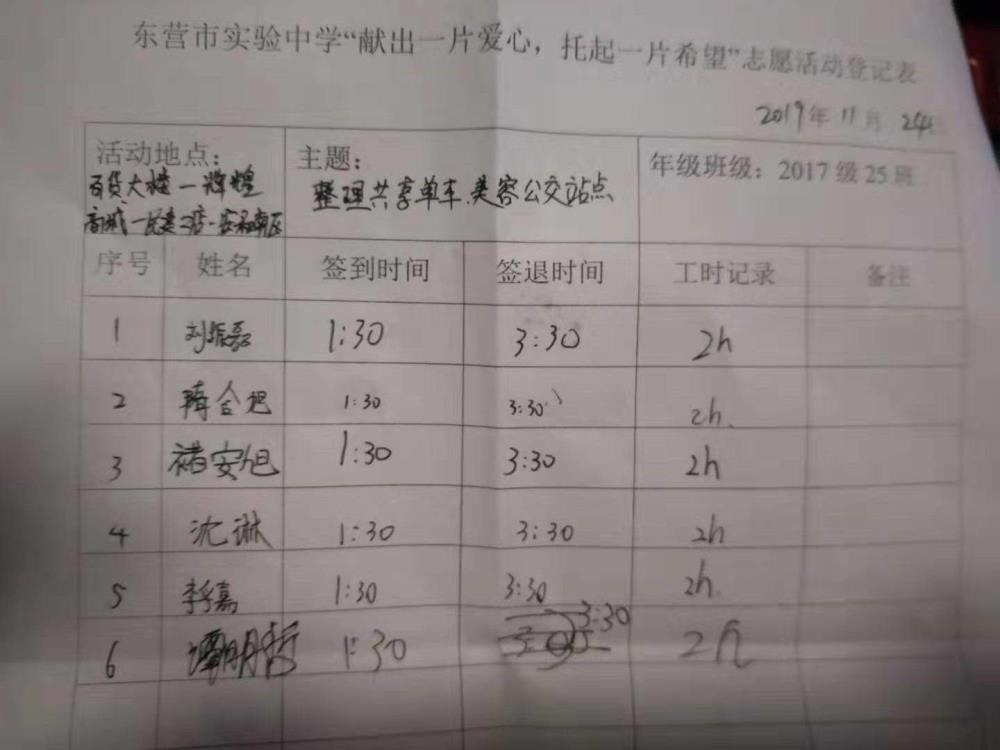 东营市实验中学“献出一片爱心，托起一片希望”志愿活动登记表
2019年11月24日
活动地点： 主题： 年级班级：2017级25班
百货大楼一辉煌 整理共享单车、美容公交站点
商城一
序号 姓名 签到时间 签退时间 工时记录 备注
1 刘振磊 1:30 3:30 2h
2 1:30 3:30 2h.
3 褚安旭 1:30 3:30 2h
4 沈琳 1:30 3:30 2h
5 1:30 3:30 2h.
6 谭明哲 1:30 3:30 2h